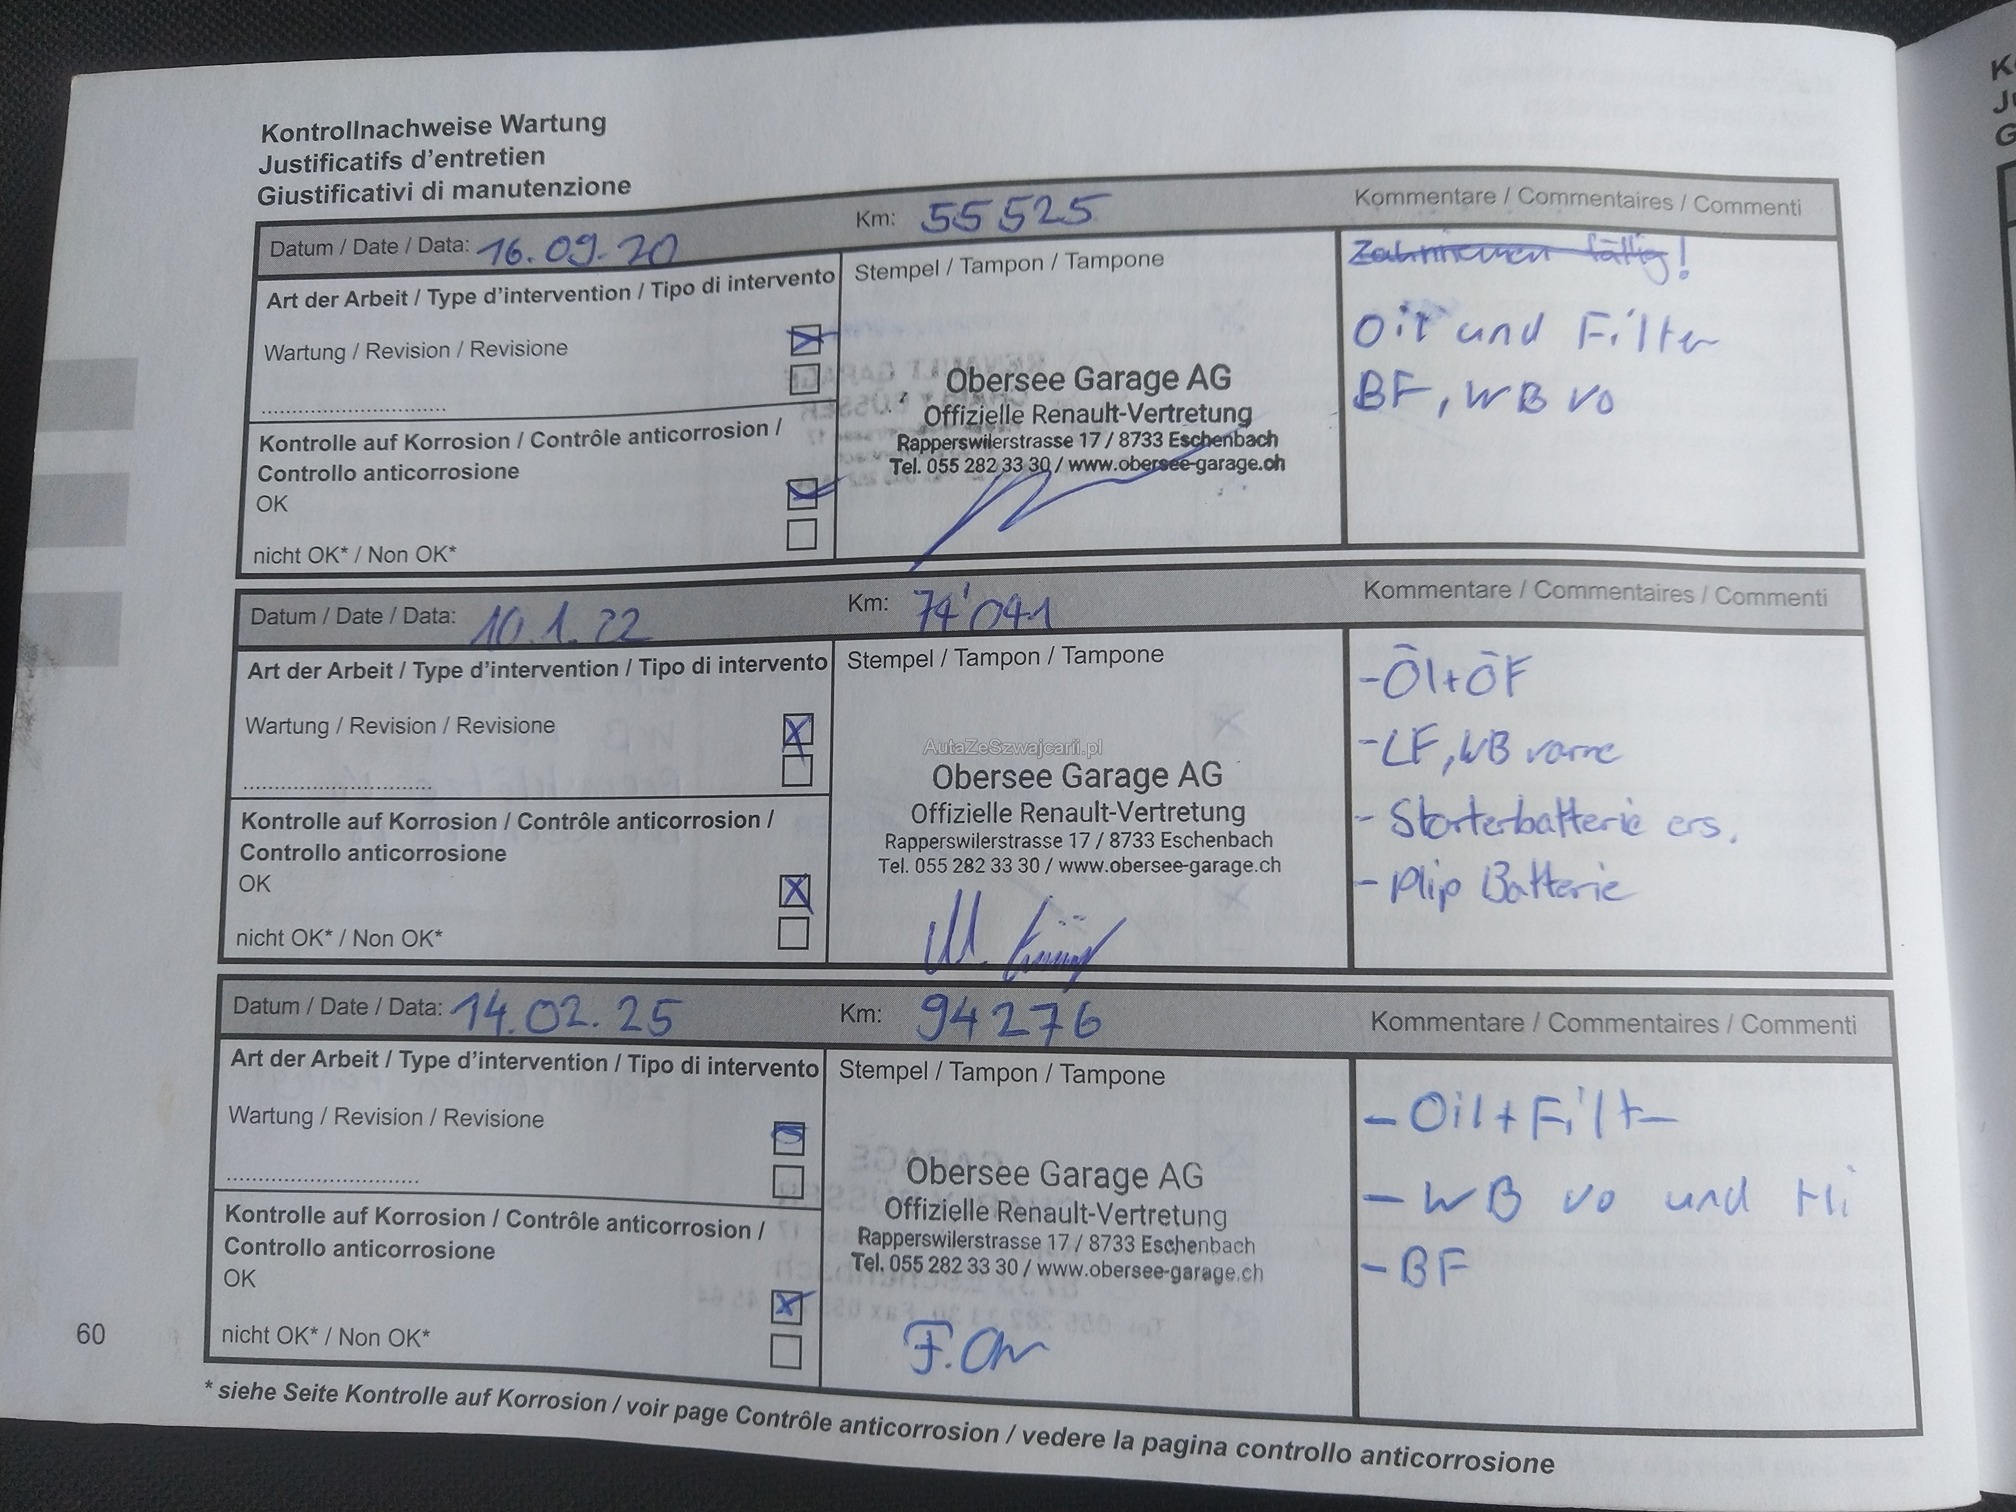 Kontrollnachweise Wartung
Justificatifs d'entretien
Giustificativi di manutenzione
Datum / Date / Data: 16.09.20
Km: 55525
Kommentare / Commentaires / Commenti
Art der Arbeit / Type d'intervention / Tipo di intervento
Wartung / Revision / Revisione
Kontrolle auf Korrosion / Contrôle anticorrosion /
Controllo anticorrosione
OK
nicht OK* / Non OK*
Stempel / Tampon / Tampone
Obersee Garage AG
Offizielle Renault-Vertretung
Rapperswilerstrasse 17 / 8733 Eschenbach
Tel. 055 282 33 30 / www.obersee-garage.ch
Zahnriemen fällig!
Oil und Filter
BF, WB vo
Datum / Date / Data: 10.1.22
Km: 74'041
Kommentare / Commentaires / Commenti
Art der Arbeit / Type d'intervention / Tipo di intervento
Wartung / Revision / Revisione
Kontrolle auf Korrosion / Contrôle anticorrosion /
Controllo anticorrosione
OK
nicht OK* / Non OK*
Stempel / Tampon / Tampone
AutaZeSzwajcarii.pl
Obersee Garage AG
Offizielle Renault-Vertretung
Rapperswilerstrasse 17 / 8733 Eschenbach
Tel. 055 282 33 30 / www.obersee-garage.ch
M.
- Öl + ÖF
- LF, WB vorne
- Starterbatterie ers.
- Plip Batterie
Datum / Date / Data: 14.02.25
Km: 94276
Kommentare / Commentaires / Commenti
Art der Arbeit / Type d'intervention / Tipo di intervento
Wartung / Revision / Revisione
Kontrolle auf Korrosion / Contrôle anticorrosion /
Controllo anticorrosione
OK
nicht OK* / Non OK*
Stempel / Tampon / Tampone
Obersee Garage AG
Offizielle Renault-Vertretung
Rapperswilerstrasse 17 / 8733 Eschenbach
Tel. 055 282 33 30 / www.obersee-garage.ch
- Oil + Filter
- WB vo und Hi
- BF
60
* siehe Seite Kontrolle auf Korrosion / voir page Contrôle anticorrosion / vedere la pagina controllo anticorrosione